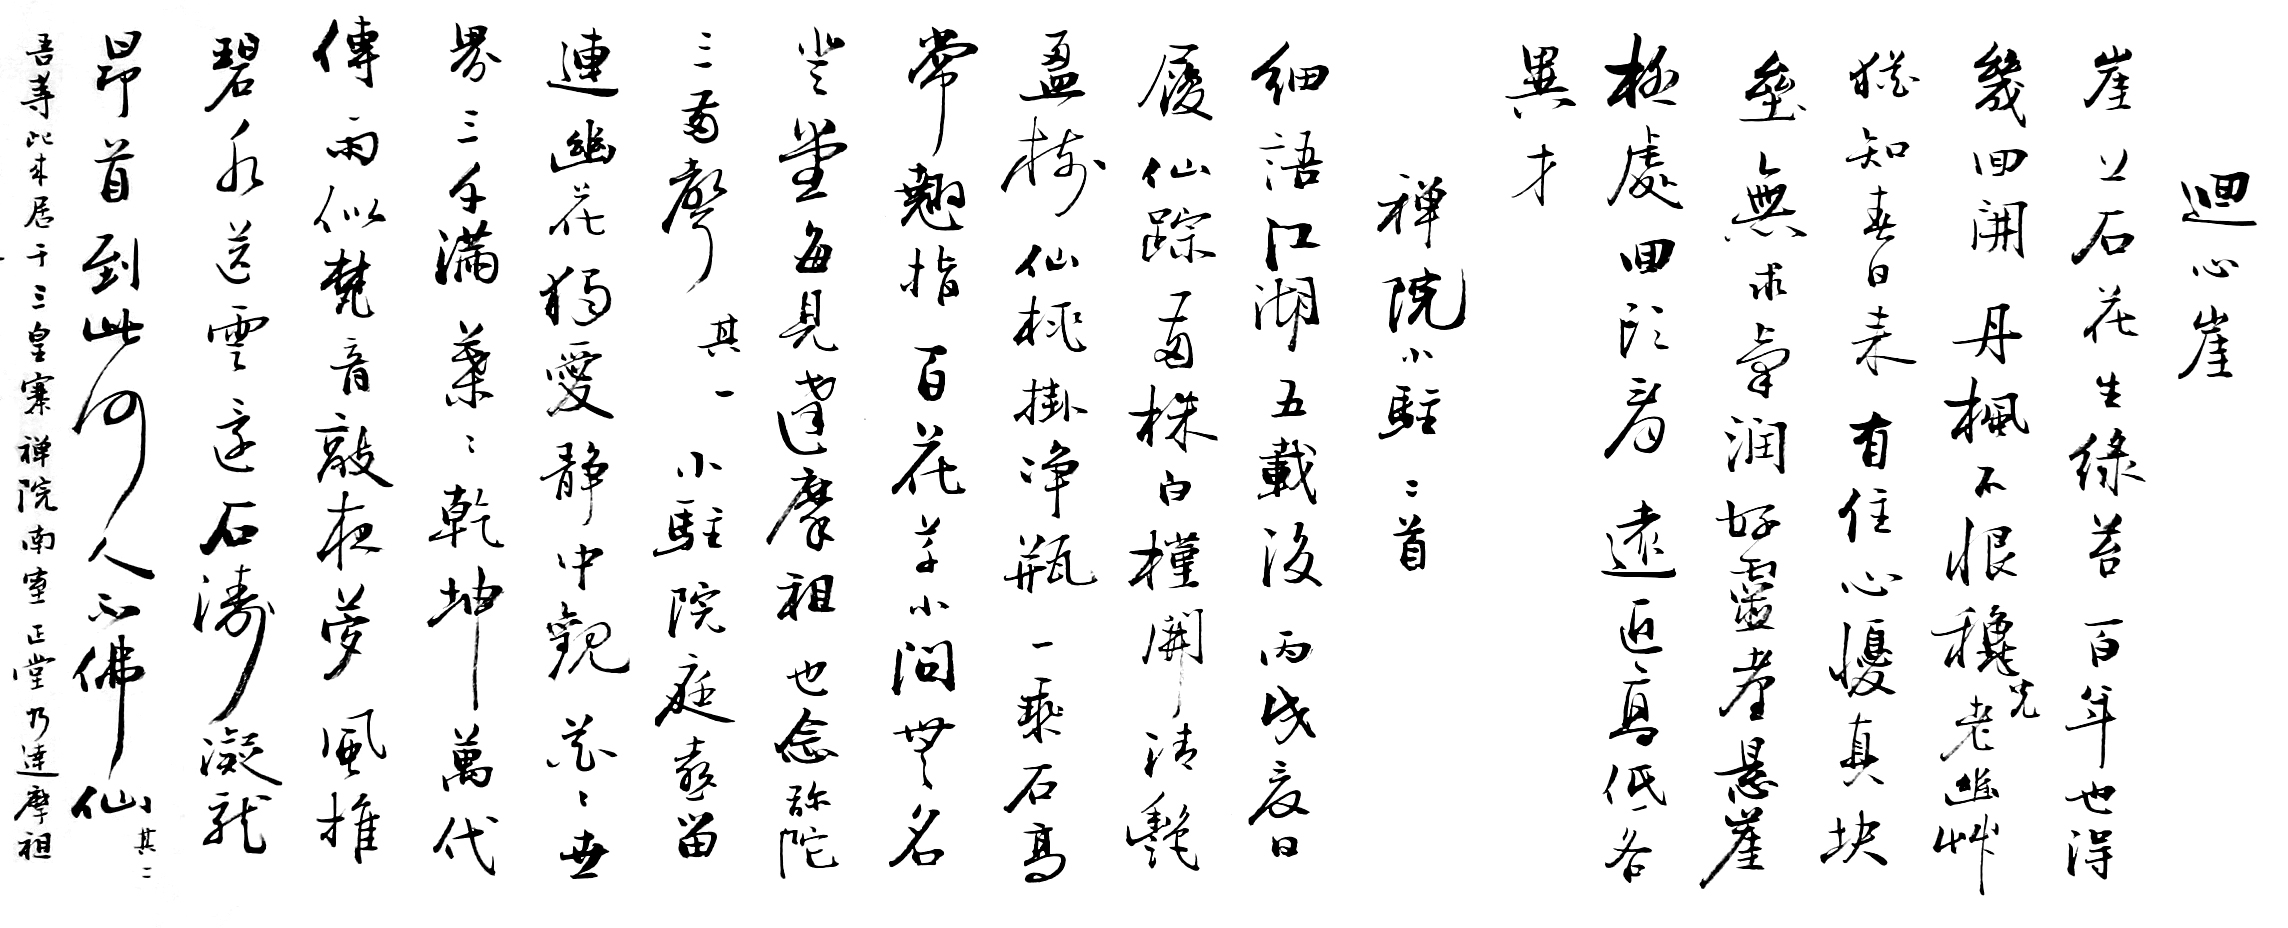 迴心崖
崖上石花生綠苔百年也得
幾回開丹楓不恨穐光老幽艸
猶知春日来有住心懮真块
壘無求氣润好靈臺悬崖
極處回頭看遠近高低各
異才
禅院小駐二首
细語江湖五載後丙戌夜日
履仙踪两株白槿開清艷
盈樹仙桃掛净瓶一乘石高
常翹指百花草小问無名
登堂每見達摩祖也念弥陀
二两聲其一小駐院庭意留
連幽花獨愛静中觀花花世
界三千满葉葉乾坤萬代
傳雨似梵音敲夜夢風推
碧水送雲還石濤凝就
昂首到此何人不佛仙其二
吾等此来居于三皇寨禅院南室正堂乃達摩祖